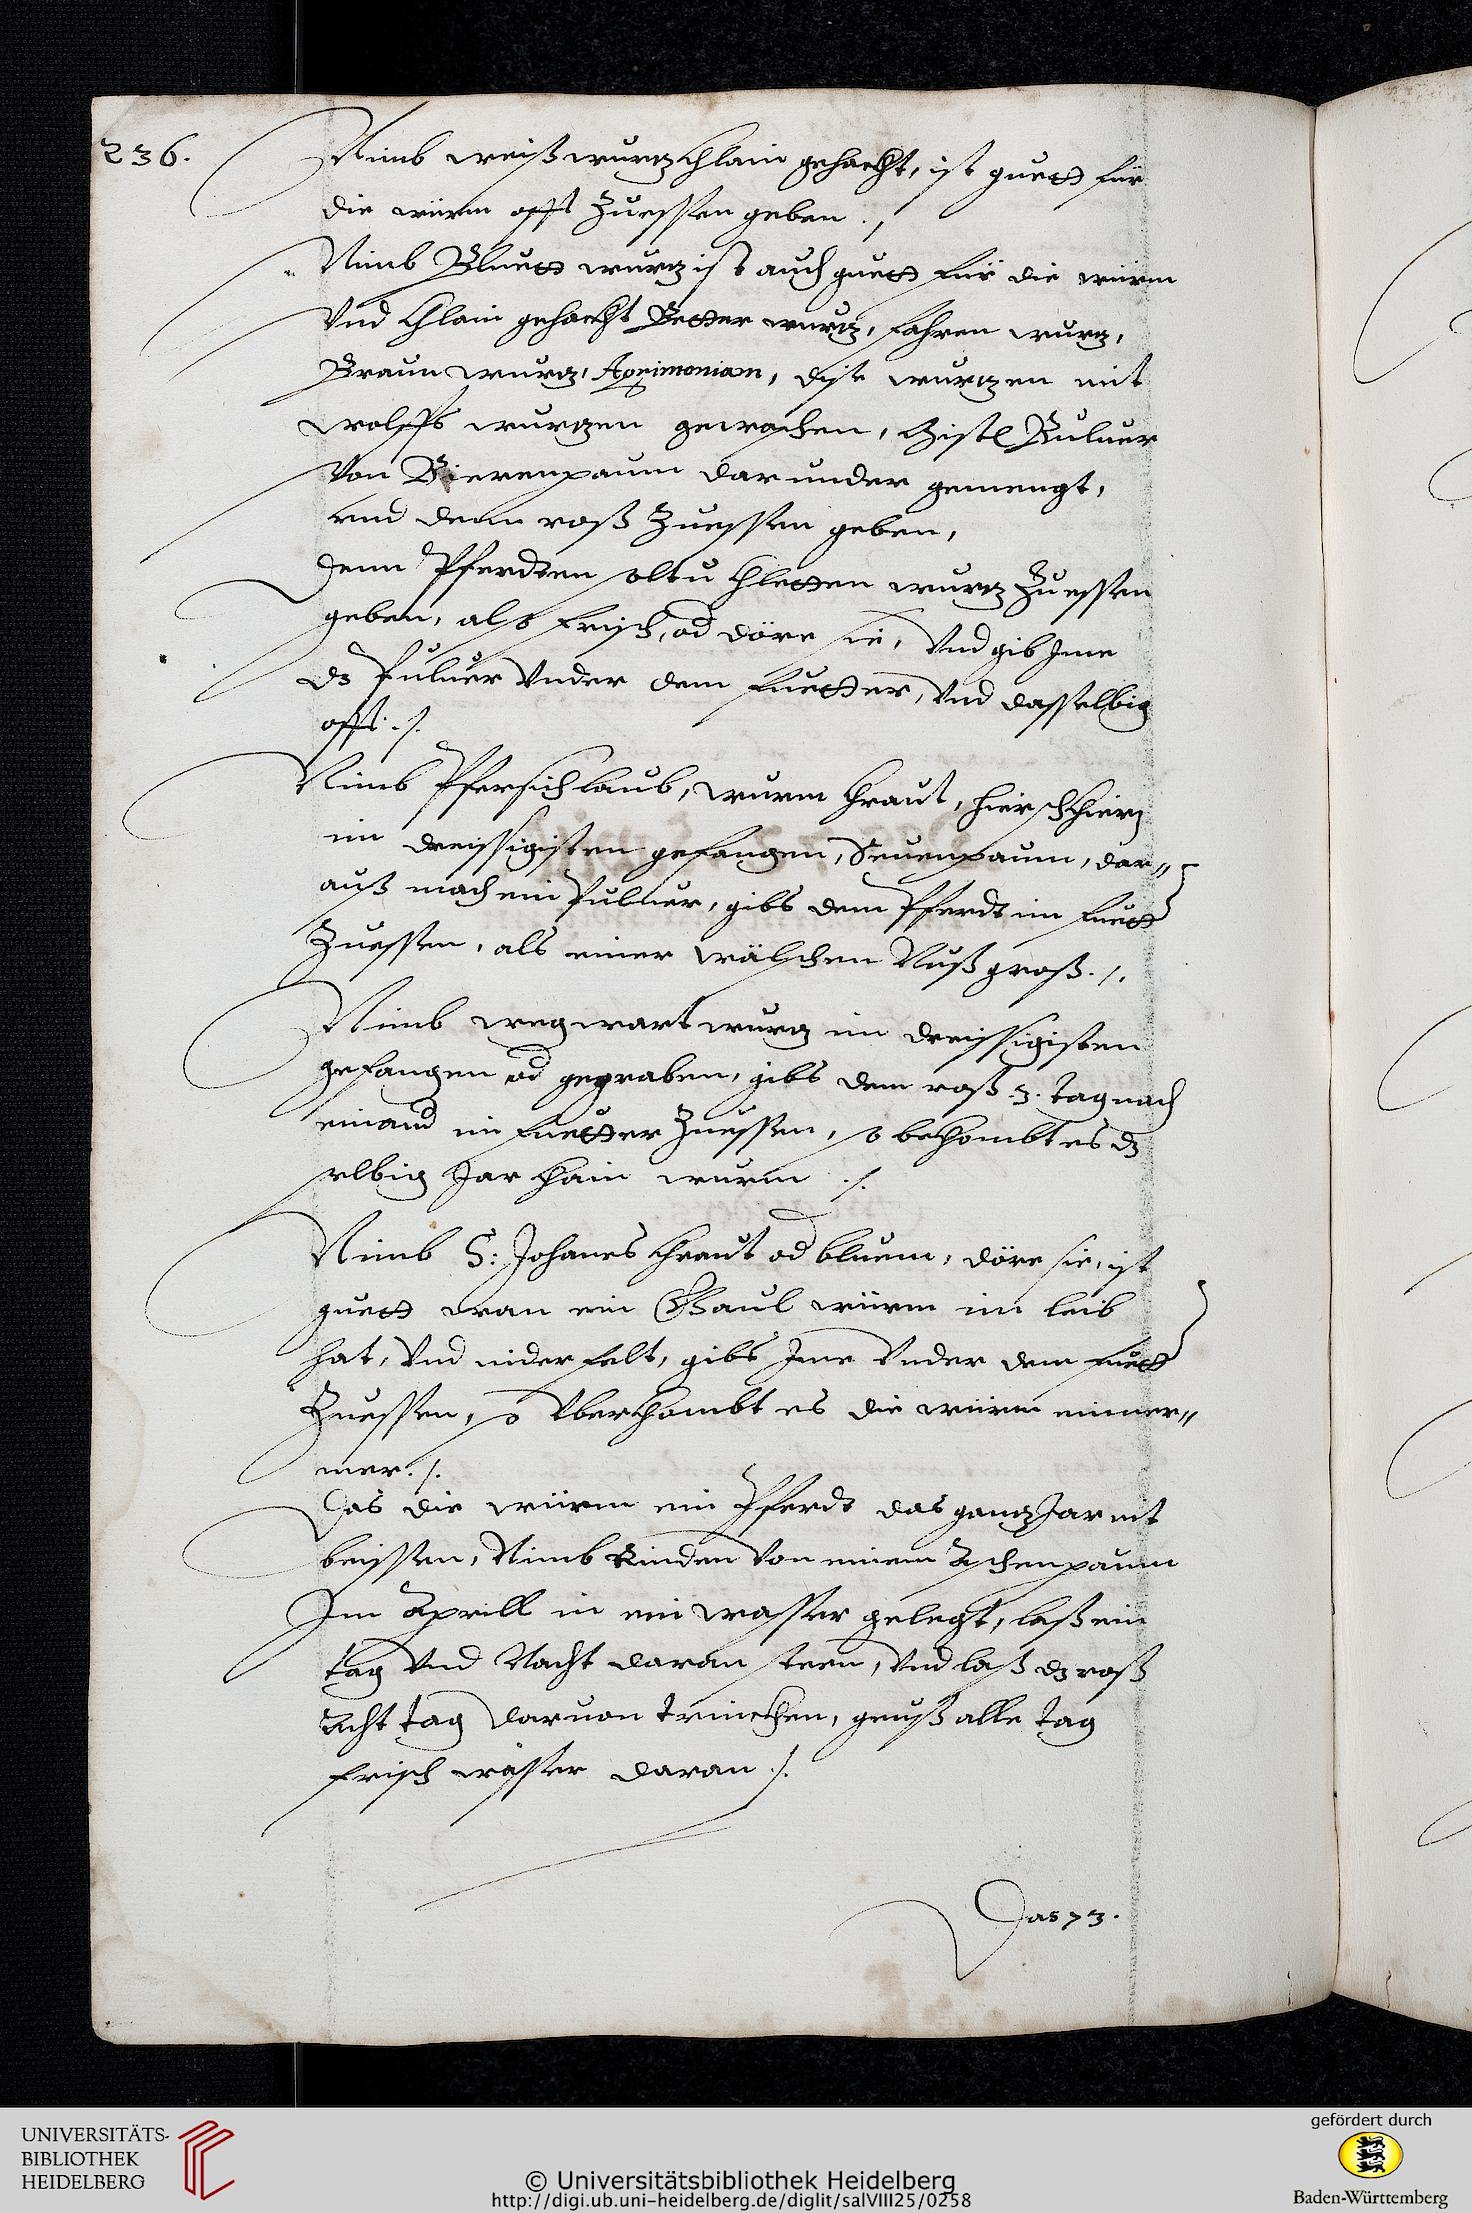 236.
Nimb weiß wurz khlain gehackht, ist guett für
die würm offt Zuessen geben ./
Nimb Bluett wurz ist auch guett für die würm
Vnd khlain gehackht Better wurz, fahren wurz,
Braun wurz, Agrimoniam, dise wurzen mit
wolffs wurzen gewaschen, Puluer
Von Bierenpaum darunder gemengt,
vnd dem roß Zuessen geben,
Denn Pferdten soltu khletten wurz Zuessen
geben, also frisch, od döre sie, Vnd gib Jme
dz Puluer Vnder dem fuetter, Vnd dasselbig
offt ./.
Nimb Pfersich laub, wurm khraut,
im dreissigisten gefangen, Seuenpaum, dar„
auß mach ein Puluer, gibs dem Pferdt im fuett
Zuessen, als einer wälschen Nuß groß ./.
Nimb wegwart wurz im dreissigisten
gefangen od gegraben, gibs dem roß .3. tag nach
einand im fuetter Zuessen, so bekhombt es dz
selbig Jar khain wurm ./.
Nimb S: Johanes khraut od bluem, döre sie, ist
guett wan ein Gaul würm im leib
hat, Vnd nider felt, gibs Jme Vnder dem fuett
Zuessen, so Vberkhombt es die würm nimer„
mer ./.
Das die würm ein Pferdt das ganz Jar nit
beissen, Nimb Rinden Von einem Aschenpaum
Im Aprill in ein wasser gelegt, laß ein
tag Vnd Nacht daran steen, Vnd laß dz roß
Acht tag daruon trinckhen, geuß alle tag
frisch wasser daran ./.
Das 73.
UNIVERSITÄTS-
BIBLIOTHEK
HEIDELBERG
© Universitätsbibliothek Heidelberg
http://digi.ub.uni-heidelberg.de/diglit/salVIII25/0258
gefördert durch
Baden-Württemberg